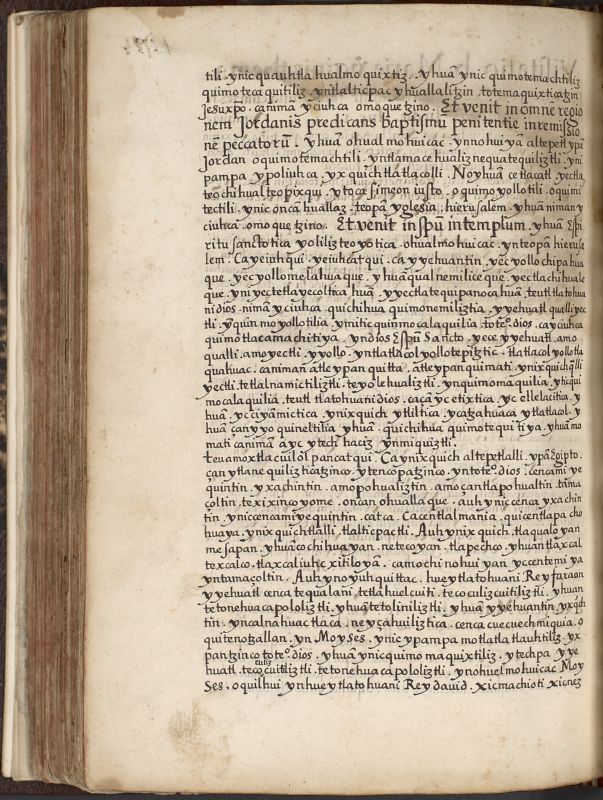 tili. ynic quauhtla hualmo quixtiz. yhuā ynic quimotemachtiliz
quimo teca quitiliz. yntlalticpac yhuā llalitzin. totemaquixticatzin
Jesu xpo. canimā yciuhca omo que tzino. Et venit in omnē regio
nem Jordanis predicans baptismū penitentie in remissio
nē peccatorū. yhuā ohualmohuicac. ynnohuiyā altepetl ypā
Jordan oquimotemachtili. yntlamacehualiznequatequiliztli. yni
pampa ypoliuhca. yxquich tlatlacolli. No yhuā ce tlacatl yectla
teochihual teopixqui. ytoca simeon iusto. oquimoyollotili. oquimi
tectili. ynic oncā huallaz. teopā yglesia. hierusalem. yhuā niman y
ciuhca. omo que tzino. Et venit in spū in templum. yhuā Espi
ritu sancto tica yoliliz teoyotica. ohualmohuicac. ynteopā hieru sa
lem. Ca yeiuhqui. yeiuhcatqui. ca yyehuantin. yec yollo chipahua
que. yec yollo melahuaque. yhuā qualnemilice que. yectlachihuale
que. yniyectetlayecoltica huā. yyectlatequipanocahuā. teutl tlatohua
ni dios. nimā yciuhca. quichihua quimonemiliztia. yyehuatl qualli yec
tli. yquinmoyollotilia. ymitic quinmocalaquilia. toteo. dios. cayciuhca
quimotlacamachitiya. yndios Espū Sancto. yece yyehuatl. amo
qualli. amo yectli. yyollo. yntlatlacolyollotepitztic. tlatlacolyollotla
quahuac. caniman atle ypan quitta. atle ypan quimati. ynixquich qlli
yectli. tetlalnamictiliztli. teyolehualiztli. ynquimomaquilia. yticqui
mocalaquilia. teutl tlatohuani dios. cacā yc etixtica. yc ellelacitica. y
huā. yc ciyamictica. ynixquich. ytliltica. ycatzahuaca. ytlatlacol. y
huā çan yyo quineltilia yhuā. quichihua quimotequitiya. yhuā mo
mati canimā ayc. ytech haciz. ynmiquiztli.
teu amoxtlacuilolpan catqui. Ca ynixquich altepetlalli. ypā Egipto.
çan ytlanequiliz ticatzinco. ytencopatzinco. yntoteo. dios. cencamiye
quintin. yxachintin. amo pohualiztin. amo çan tlapohualtin. tama
çoltin. texixincoyome. oncan ohuallaque. auh ynic cenca yxachin
tin. ynic cencamiyequintin. catca. Ca centlalmania. quicentlapacho
huaya. ynixquich tlalli. tlalticpactli. Auh ynixquich. tlaqualoyan
mesapan. yhuā cochihuayan. netecoyan. tlapechco. yhuan tlaxcal
texcalco. tlaxcaliuhcxitiloyā. camochi nohuiyan yc centemiya
yn tamaçoltin. Auh yn oyuh quittac. huey tlatohuani Rey faraon
yyehuatl cenca tequalani. tetlahuelcuiti. tecoculizcuitiliztli. yhuan
tetonehuacapololiztli. yhuā tetoliniliztli. yhuā yyehuantin yxqch
tin. yncalnahuac tlaca. neyçahuiliztica. cenca cuecuechmiquia. o
quitenotzallan. yn Moyses. ynic ypampa motlatlatlauhtiliz. yx
pantzinco toteo. dios. yhuā ynic quimomaquixtiliz. ytechpa yye
huatl. tecocuiliz cuitiliztli. tetonehuacapololiztli. ynohuelmohuicac Moy
Ses. oquilhui ynhuey tlatohuani Rey dauid. xicmachioti xicnez